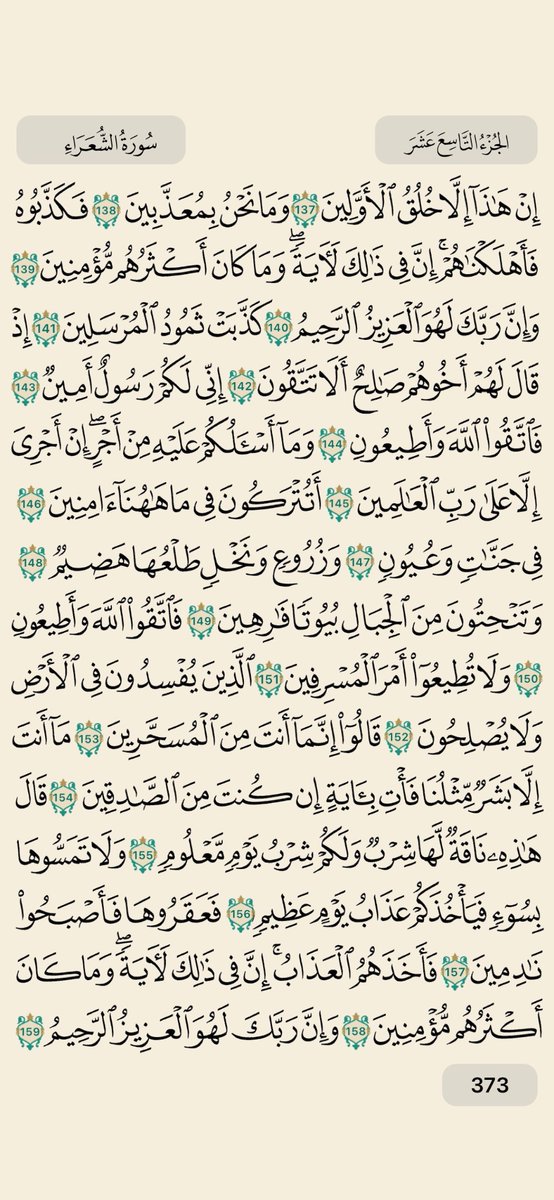 الجُزْءُ التَّاسِعَ عَشَرَ
سُورَةُ الشُّعَرَاءِ
إِنْ هَٰذَآ إِلَّا خُلُقُ ٱلْأَوَّلِينَ 137 وَمَا نَحْنُ بِمُعَذَّبِينَ 138 فَكَذَّبُوهُ
فَأَهْلَكْنَٰهُمْۚ إِنَّ فِى ذَٰلِكَ لَءَايَةًۖ وَمَا كَانَ أَكْثَرُهُم مُّؤْمِنِينَ 139
وَإِنَّ رَبَّكَ لَهُوَ ٱلْعَزِيزُ ٱلرَّحِيمُ 140 كَذَّبَتْ ثَمُودُ ٱلْمُرْسَلِينَ 141 إِذْ
قَالَ لَهُمْ أَخُوهُمْ صَٰلِحٌ أَلَا تَتَّقُونَ 142 إِنِّى لَكُمْ رَسُولٌ أَمِينٌ 143
فَٱتَّقُوا۟ ٱللَّهَ وَأَطِيعُونِ 144 وَمَآ أَسْـَٔلُكُمْ عَلَيْهِ مِنْ أَجْرٍۖ إِنْ أَجْرِىَ
إِلَّا عَلَىٰ رَبِّ ٱلْعَٰلَمِينَ 145 أَتُتْرَكُونَ فِى مَا هَٰهُنَآ ءَامِنِينَ 146
فِى جَنَّٰتٍ وَعُيُونٍ 147 وَزُرُوعٍ وَنَخْلٍ طَلْعُهَا هَضِيمٌ 148
وَتَنْحِتُونَ مِنَ ٱلْجِبَالِ بُيُوتًا فَٰرِهِينَ 149 فَٱتَّقُوا۟ ٱللَّهَ وَأَطِيعُونِ
150 وَلَا تُطِيعُوٓا۟ أَمْرَ ٱلْمُسْرِفِينَ 151 ٱلَّذِينَ يُفْسِدُونَ فِى ٱلْأَرْضِ
وَلَا يُصْلِحُونَ 152 قَالُوٓا۟ إِنَّمَآ أَنتَ مِنَ ٱلْمُسَحَّرِينَ 153 مَآ أَنتَ
إِلَّا بَشَرٌ مِّثْلُنَا فَأْتِ بِـَٔايَةٍ إِن كُنتَ مِنَ ٱلصَّٰدِقِينَ 154 قَالَ
هَٰذِهِۦ نَاقَةٌ لَّهَا شِرْبٌ وَلَكُمْ شِرْبُ يَوْمٍ مَّعْلُومٍ 155 وَلَا تَمَسُّوهَا
بِسُوٓءٍ فَيَأْخُذَكُمْ عَذَابُ يَوْمٍ عَظِيمٍ 156 فَعَقَرُوهَا فَأَصْبَحُوا۟
نَٰدِمِينَ 157 فَأَخَذَهُمُ ٱلْعَذَابُۚ إِنَّ فِى ذَٰلِكَ لَءَايَةًۖ وَمَا كَانَ
أَكْثَرُهُم مُّؤْمِنِينَ 158 وَإِنَّ رَبَّكَ لَهُوَ ٱلْعَزِيزُ ٱلرَّحِيمُ 159
373